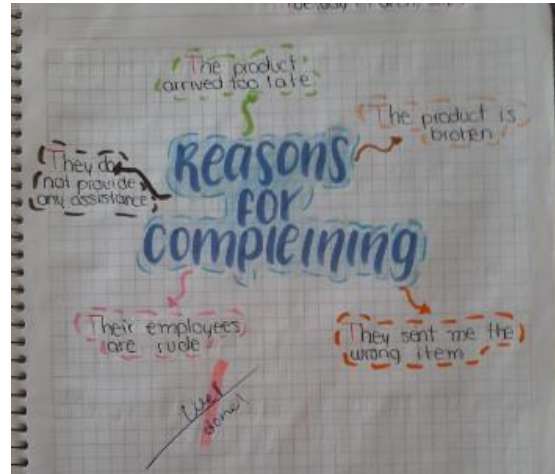 The product
arrived too late
The product is
broken
They do
not provide
any assistance
Reasons
for
compleining
Their employees
are rude
They sent me the
wrong item
Well
done!